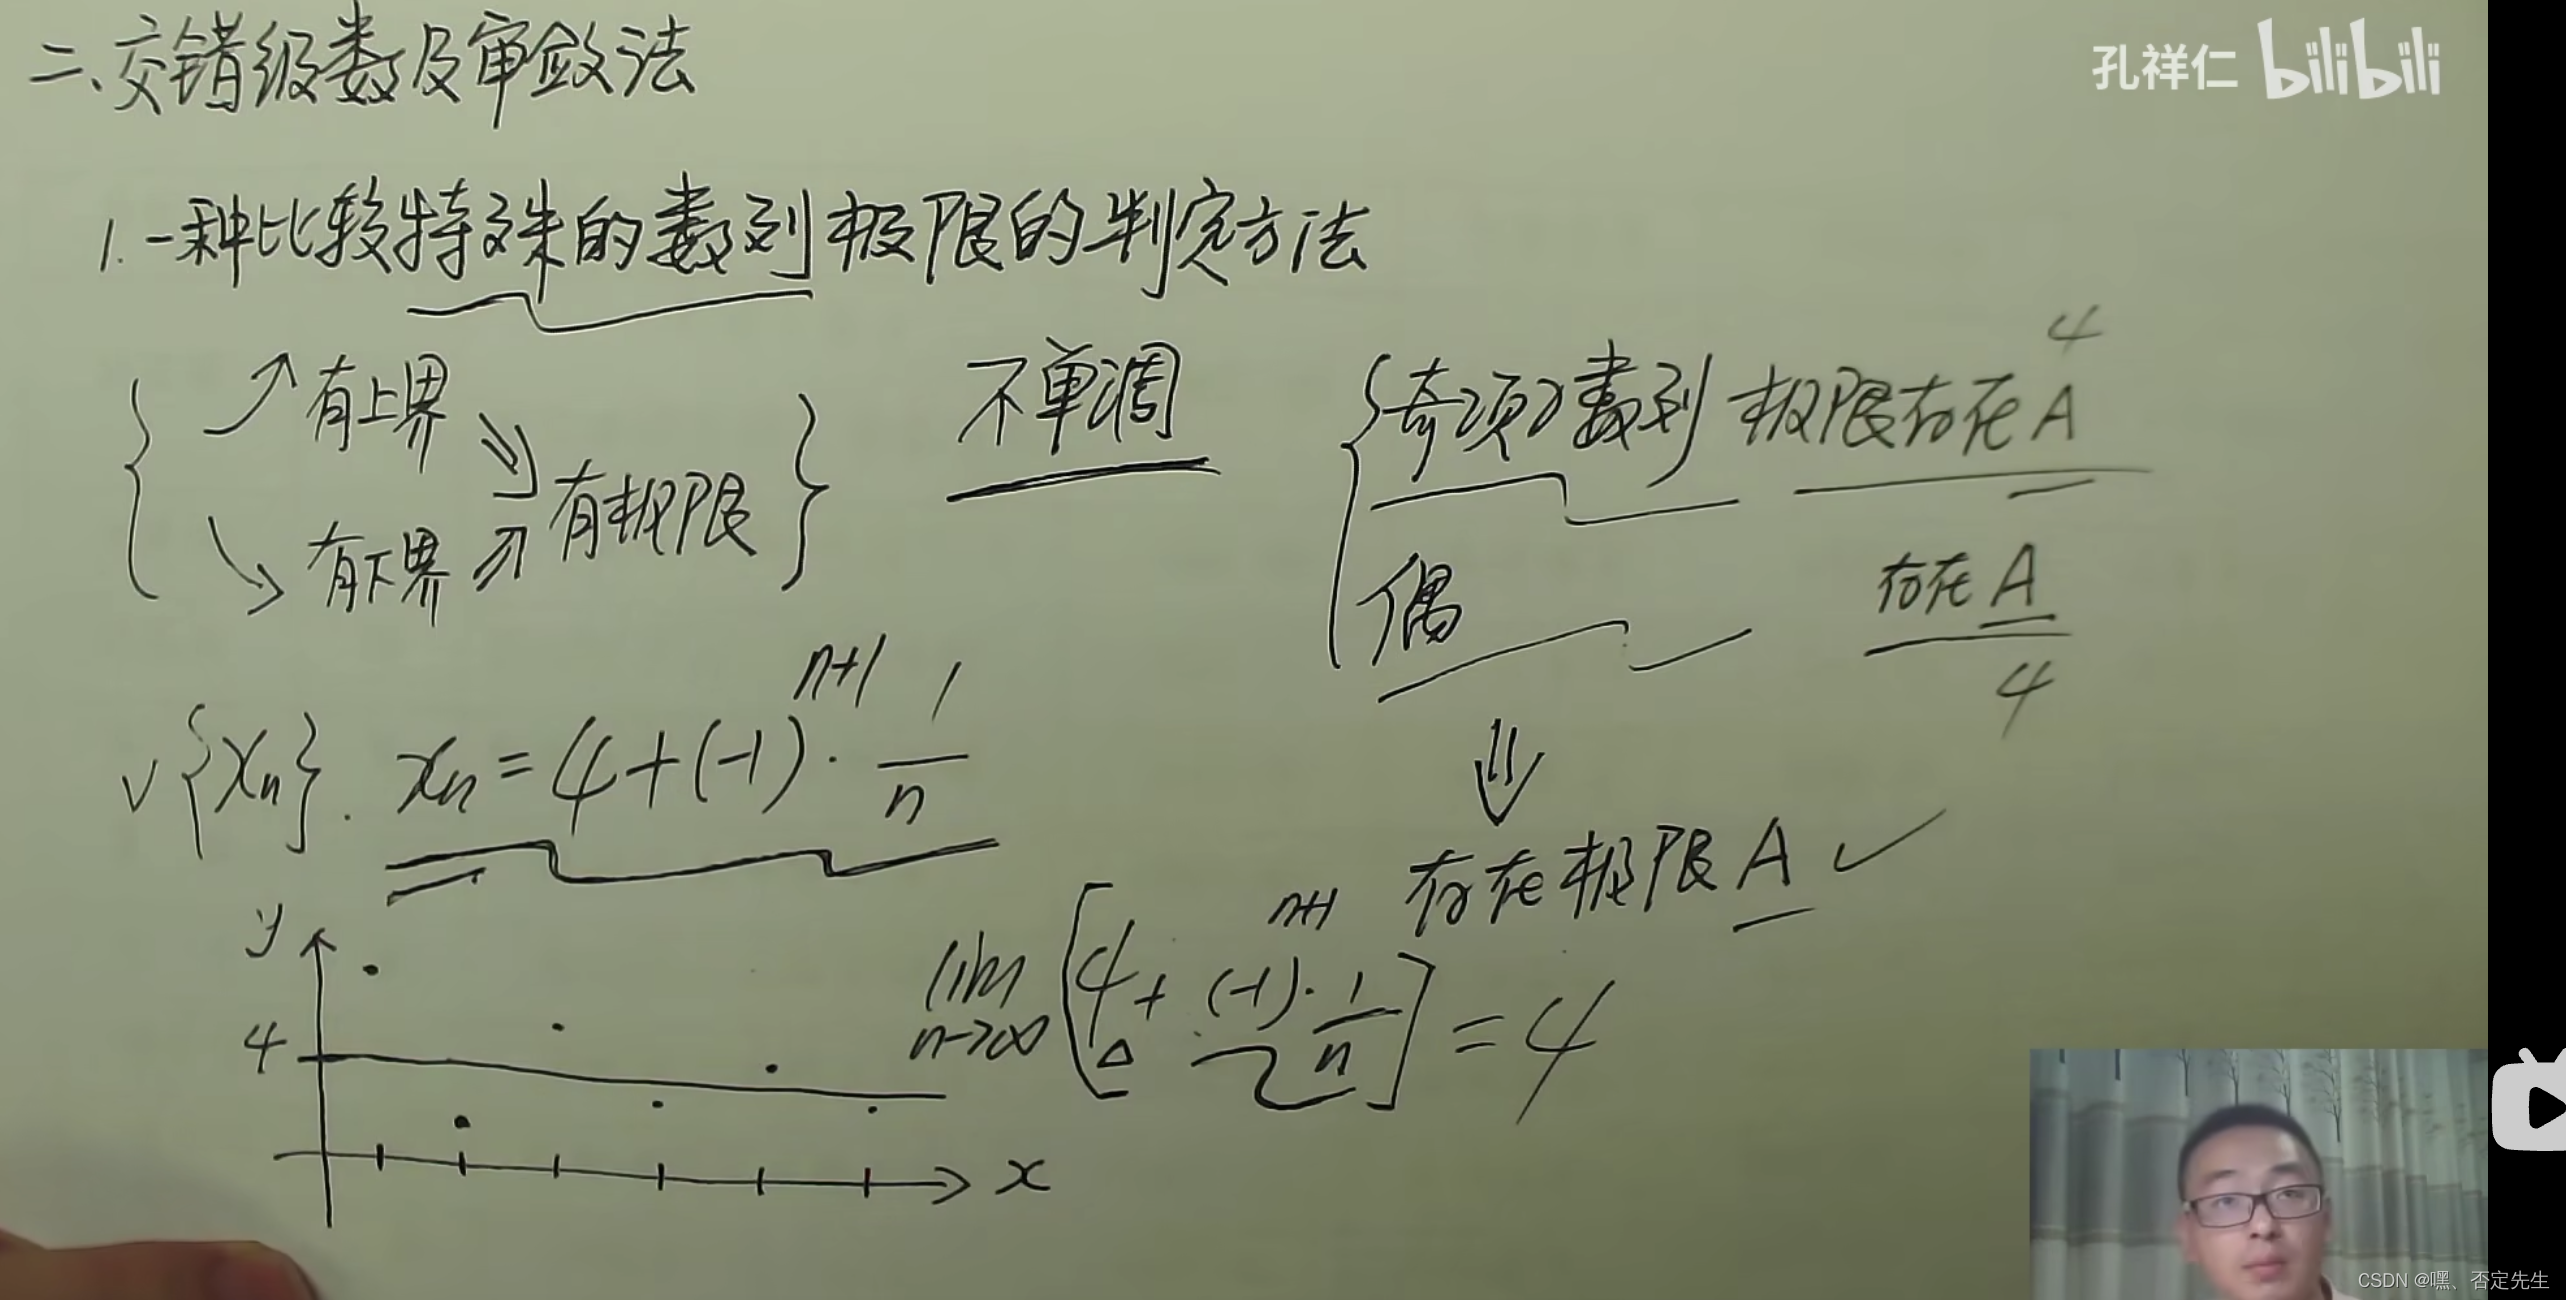 二、交错级数及审敛法
孔祥仁 bilibili
1. 一种比较特殊的数列极限的判定方法
{ ↗ 有上界 ⇘ 有极限 }
↘ 有下界 ⇗
不单调
4
{ 奇项数列 极限存在 A
偶 存在 A
4
⇓
存在极限 A ✓
√ {xn}. xn = 4 + (-1)^{n+1} · 1/n
y
4
x
lim n→∞ [4 + (-1)^{n+1} · 1/n] = 4
CSDN @嘿、否定先生